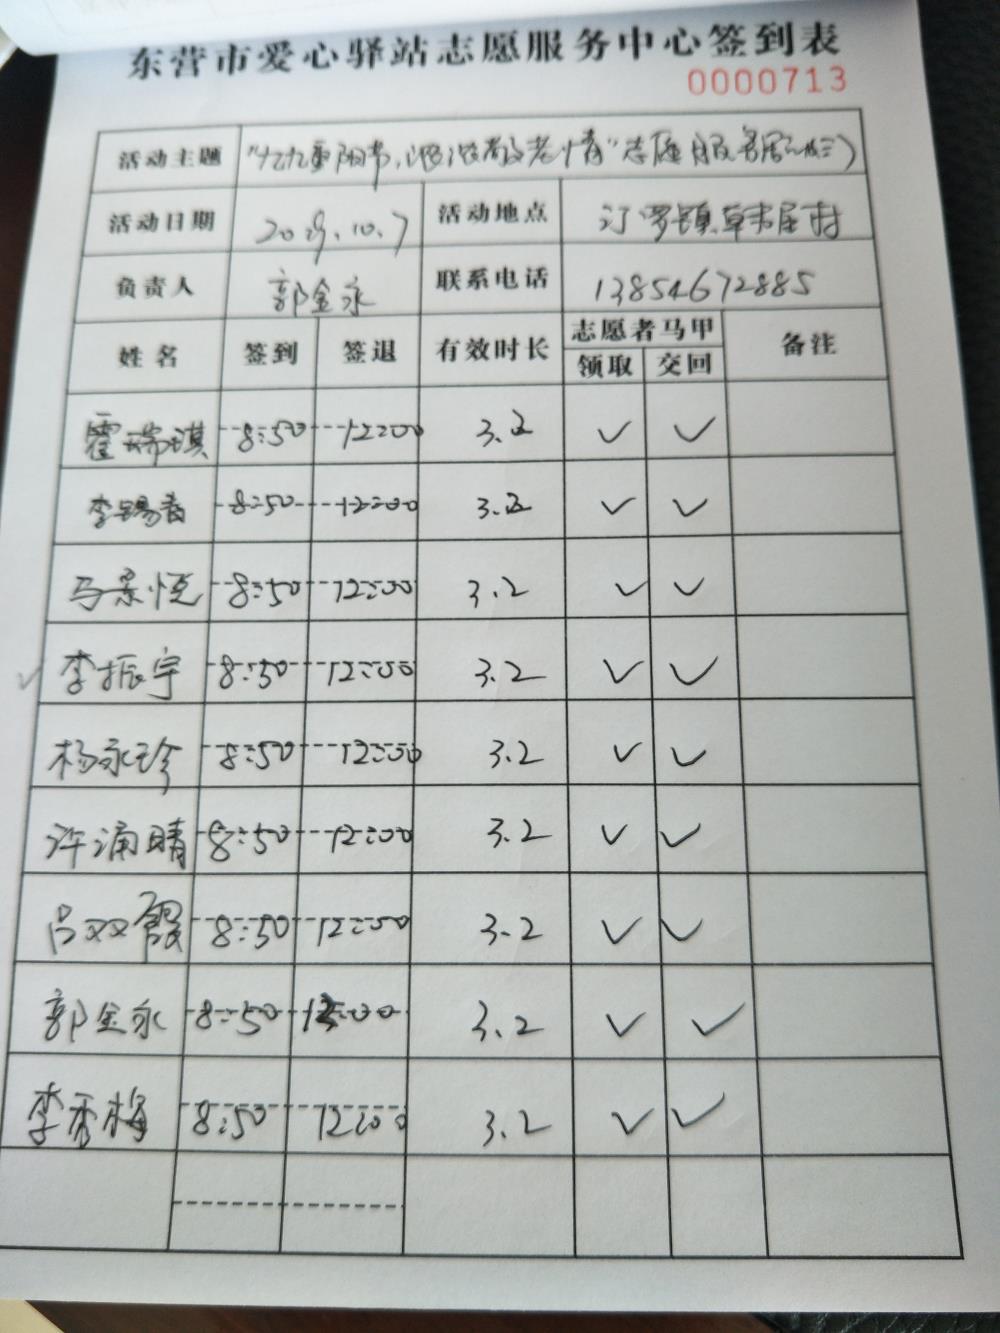 东营市爱心驿站志愿服务中心签到表
0000713
活动主题 "九九重阳节,浓浓敬老情"志愿服务
活动日期 2019.10.7 活动地点 汀罗镇韩屋村
负责人 郭金永 联系电话 13854672885
姓名 签到 签退 有效时长 志愿者马甲 备注
领取 交回
霍瑞琪 8:50 12:00 3.2 ✓ ✓
李锡青 8:50 12:00 3.2 ✓ ✓
马景恒 8:50 12:00 3.2 ✓ ✓
✓ 李振宇 8:50 12:00 3.2 ✓ ✓
杨永珍 8:50 12:00 3.2 ✓ ✓
许涌晴 8:50 12:00 3.2 ✓ ✓
吕双霞 8:50 12:00 3.2 ✓ ✓
郭金永 8:50 12:00 3.2 ✓ ✓
李秀梅 8:50 12:00 3.2 ✓ ✓